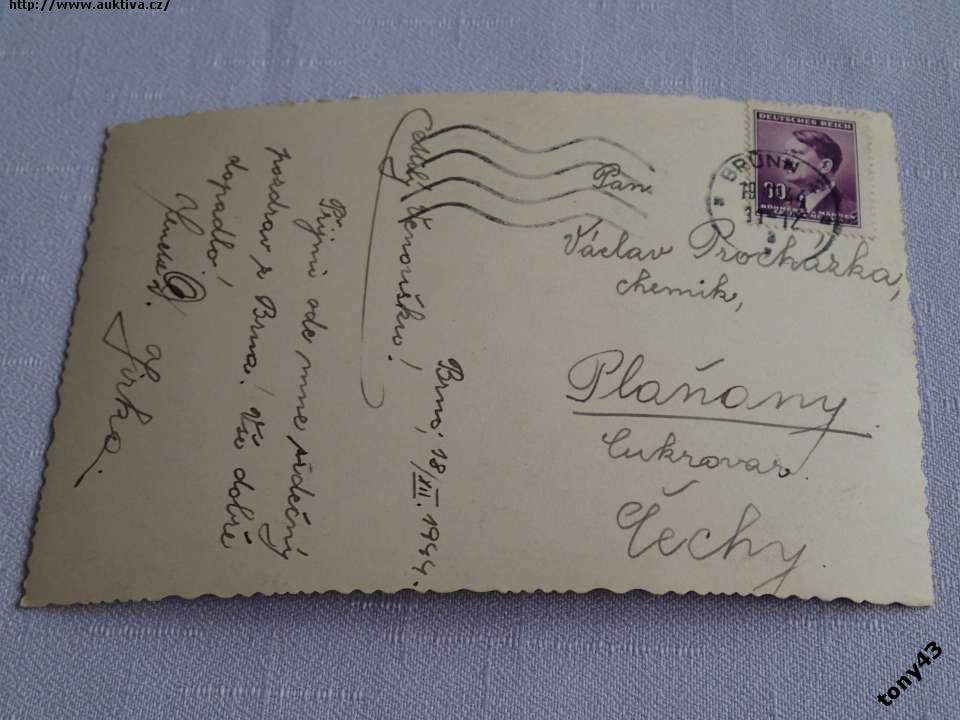 http://www.auktiva.cz/
DEUTSCHES REICH
60
BÖHMEN u. MÄHREN
BRÜNN
Pan
Václav Procházka,
chemik,
Plaňany
Cukrovar
Čechy
Brno, 18/XII. 1944.
Milý Venoušku!
Přijmi ode mne srdečný
pozdrav z Brna! Vše dobře
dopadlo!
Jirka.
tony43